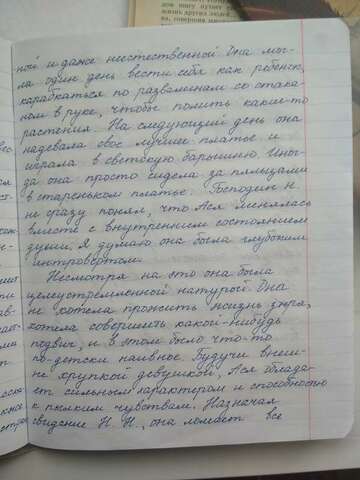 ной и даже неестественной. Она мог-
ла один день вести себя как ребенок,
карабкаться по развалинам со стака-
ном в руке, чтобы полить какие-то
растения. На следующий день она
надевала свое лучшее платье и
играла в светскую барышню. Иног-
да она просто сидела за пяльцами
в стареньком платье. Господин Н.
не сразу понял, что Ася менялась
вместе с внутренним состоянием
души. Я думаю она была глубоким
интровертом.
Несмотря на это она была
целеустремленной натурой. Она
не хотела прожить жизнь зря,
хотела совершить какой-нибудь
подвиг, и в этом было что-то
по-детски наивное. Будучи внеш-
не хрупкой девушкой, Ася облада-
ет сильным характером и способностью
к пылким чувствам. Назначая
свидание Н. Н., она ломает все